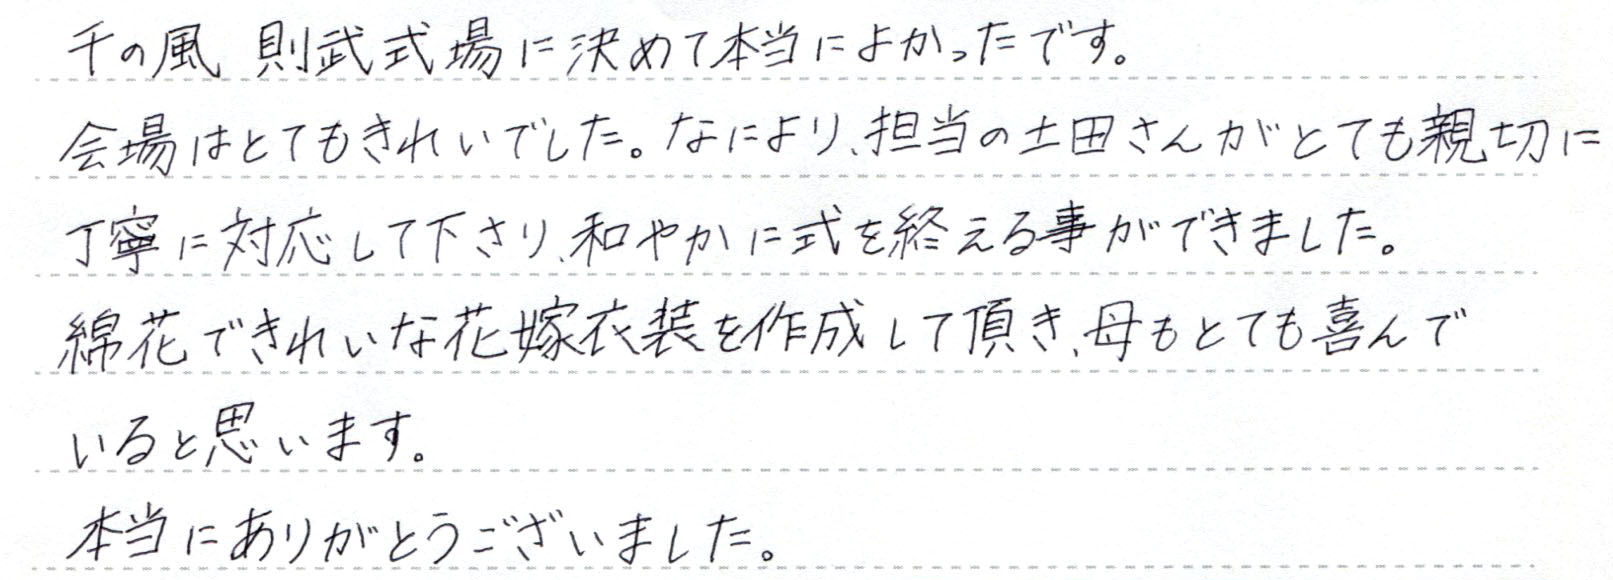 千の風 則武式場に決めて本当によかったです。
会場はとてもきれいでした。なにより、担当の土田さんがとても親切に
丁寧に対応して下さり、和やかに式を終える事ができました。
綿花できれいな花嫁衣装を作成して頂き、母もとても喜んで
いると思います。
本当にありがとうございました。